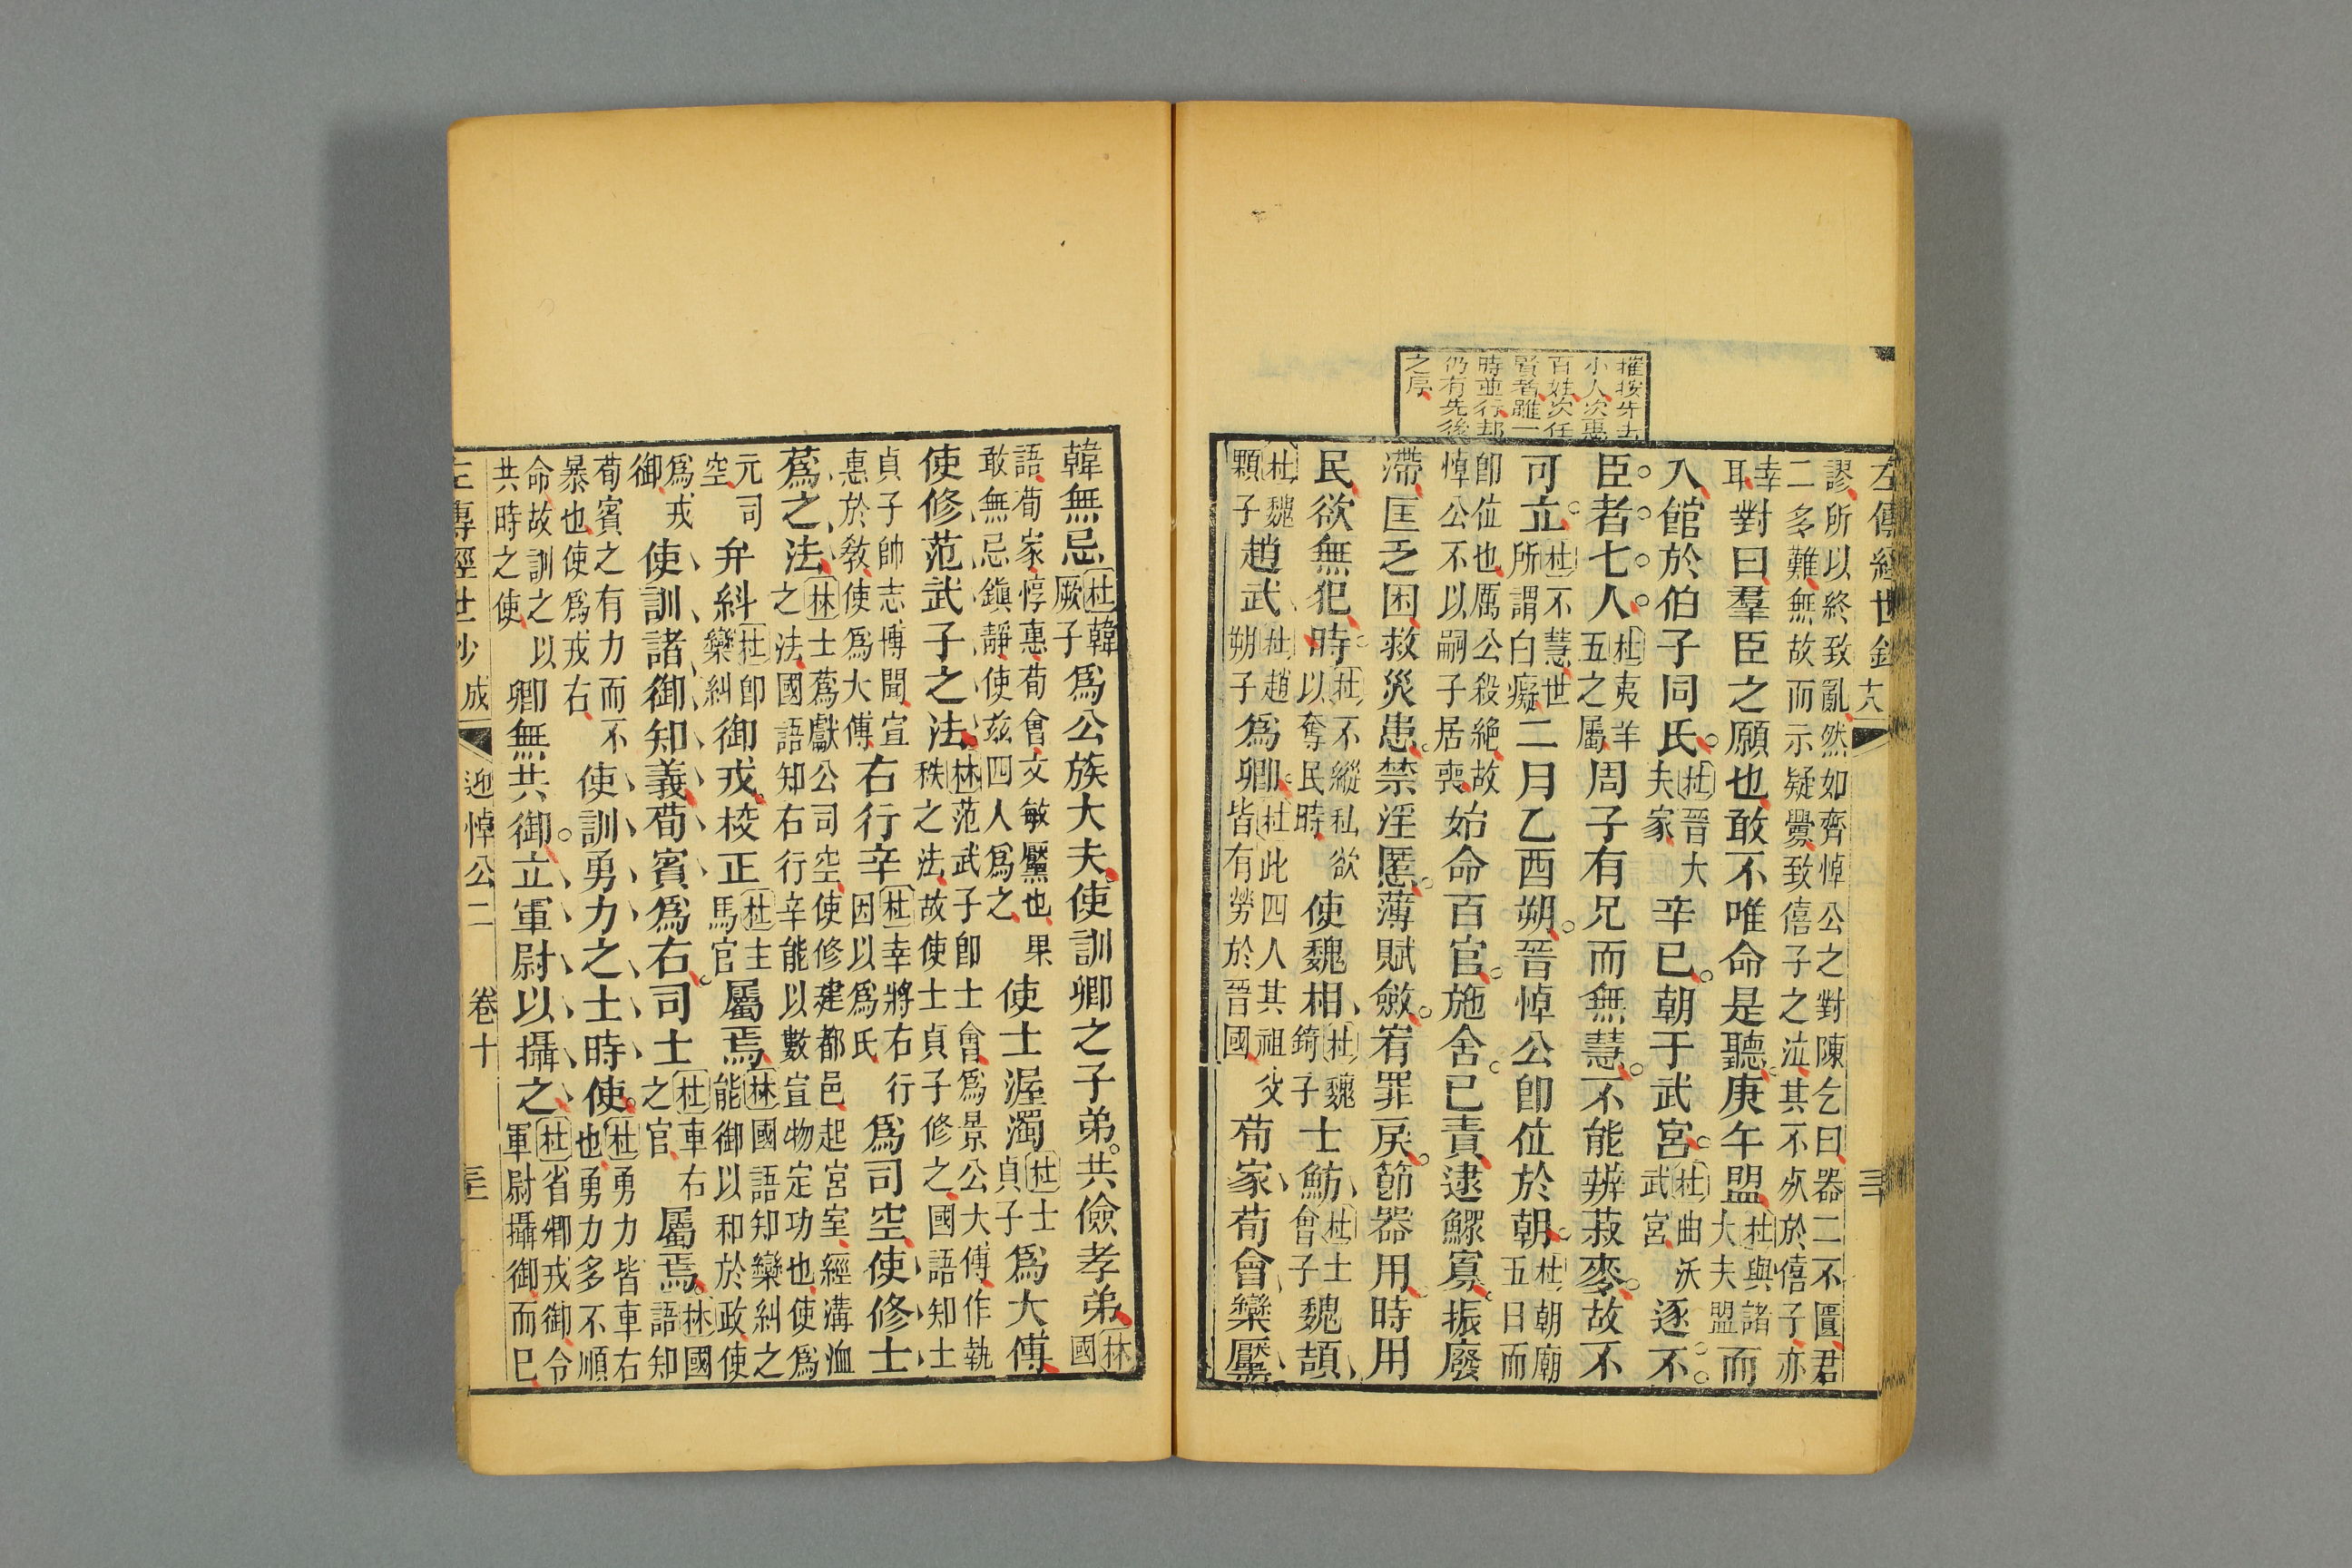 左傳經世鈔 十八
謬所以終致亂然如齊悼公之對陳乞曰器二不匱君
二多難無故而示疑釁致僖子之泣其不疚於僖子亦
幸
耳
對曰羣臣之願也敢不唯命是聽庚午盟
杜與諸
大夫盟
而
入館於伯子同氏
杜晉大
夫家
辛巳朝于武宮
杜曲沃
武宮
逐不
臣者七人
杜夷羊
五之屬
周子有兄而無慧不能辨菽麥故不
可立
杜不慧世
所謂白癡
二月乙酉朔晉悼公卽位於朝
杜朝廟
五日而
卽位也厲公殺絶故
悼公不以嗣子居喪
始命百官施舍已責逮鰥寡振廢
滯匡乏困救災患禁淫慝薄賦斂宥罪戾節器用時用
民欲無犯時
杜不縱私欲
以奪民時
使魏相
杜魏
錡子
士魴
杜士
會子
魏頡
杜魏
顆子
趙武
杜趙
朔子
爲卿
杜此四人其祖父
皆有勞於晉國
荀家荀會欒黶
摧按先去
小人次惠
百姓次任
賢者雖一
時並行却
仍有先後
之序
韓無忌
杜韓
厥子
爲公族大夫使訓卿之子弟共儉孝弟
林
國
語荀家惇惠荀會文敏黶也果
敢無忌鎭靜使兹四人爲之
使士渥濁
杜士
貞子
爲大傅
使修范武子之法
林范武子卽士會爲景公大傅作執
秩之法故使士貞子修之國語知士
貞子帥志博聞宣
惠於敎使爲大傅
右行辛
杜辛將右行
因以爲氏
爲司空使修士
蔿之法
林士蔿獻公司空使修建都邑起宮室經溝洫
之法國語知右行辛能以數宣物定功也使爲
元司
空
弁糾
杜卽
欒糾
御戎校正
杜主
馬官
屬焉
林國語知欒糾之
能御以和於政使
爲戎
御
使訓諸御知義荀賓爲右司士
杜車右
之官
屬焉
林國
語知
荀賓之有力而不
暴也使爲戎右
使訓勇力之士時使
杜勇力皆車右
也勇力多不順
命故訓之以
共時之使
卿無共御立軍尉以攝之
杜省卿戎御令
軍尉攝御而已
左傳經世鈔 成 迎悼公二 卷十